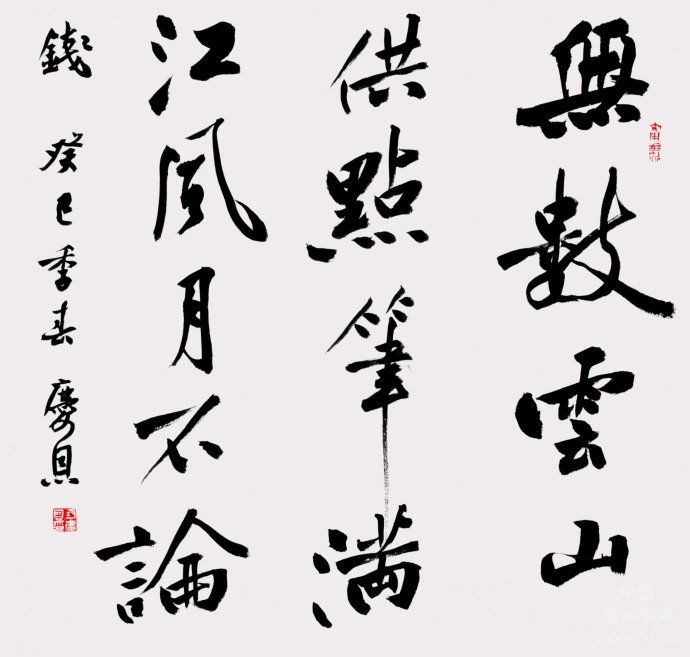 無數雲山
供點筆滿
江風月不論
錢 癸巳季春 慶恩